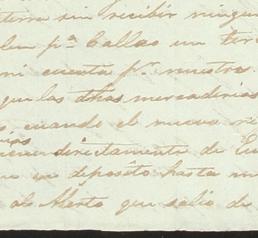 sin recibir ningun
pa. Callao un ter
ni cuenta pr. muestra.
que las dhas mercaderias
cuando el nuevo
directamente de Eu
en deposito hasta nu
al Alerta que salio de